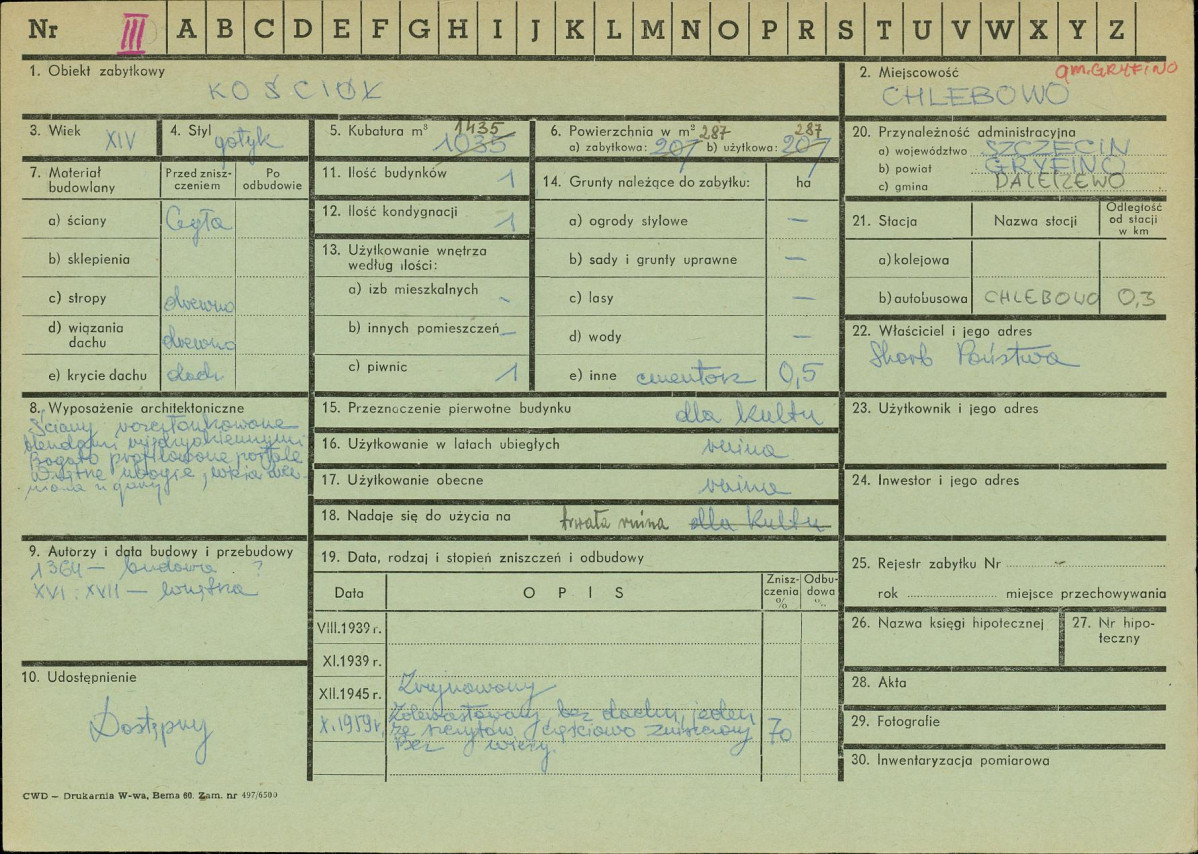 Nr III A B C D E F G H I J K L M N O P R S T U V W X Y Z
1. Obiekt zabytkowy
KOŚCIÓŁ
2. Miejscowość
gm. GRYFINO
CHLEBOWO
3. Wiek XIV
4. Styl gotyk
5. Kubatura m³ 1435
1035
6. Powierzchnia w m² 287 287
a) zabytkowa: 207 b) użytkowa: 207
20. Przynależność administracyjna
a) województwo SZCZECIN
b) powiat GRYFINO
c) gmina DALESZEWO
7. Materiał budowlany
Przed znisz-
czeniem
Po
odbudowie
a) ściany Cegła
b) sklepienia
c) stropy drewno
d) wiązania
dachu drewno
e) krycie dachu
11. Ilość budynków 1
12. Ilość kondygnacji 1
13. Użytkowanie wnętrza
według ilości:
a) izb mieszkalnych -
b) innych pomieszczeń -
c) piwnic 1
14. Grunty należące do zabytku: ha
a) ogrody stylowe —
b) sady i grunty uprawne —
c) lasy —
d) wody —
e) inne cmentarz 0,5
21. Stacja Nazwa stacji
Odległość
od stacji
w km
a) kolejowa
b) autobusowa CHLEBOWO 0,3
22. Właściciel i jego adres
Skarb Państwa
8. Wyposażenie architektoniczne
Ściany rozczłonkowane
blendami międzyokiennymi
Bogato profilowane portale
Wnętrze ubogie,
9. Autorzy i data budowy i przebudowy
1364 — budowa ?
XVI : XVII —
10. Udostępnienie
Dostępny
15. Przeznoczenie pierwotne budynku dla kultu
16. Użytkowanie w latach ubiegłych ruina
17. Użytkowanie obecne ruina
18. Nadaje się do użycia na trwała ruina dla kultu
19. Data, rodzaj i stopień zniszczeń i odbudowy
Data OPIS
Znisz-
czenia
%
Odbu-
dowa
%
VIII.1939 r.
XI.1939 r.
XII.1945 r. Zrujnowany
X.1959 r. Zdewastowany bez dachu, jeden
ze szczytów częściowo zniszczony 70
Bez wieży.
23. Użytkownik i jego adres
24. Inwestor i jego adres
25. Rejestr zabytku Nr -
rok miejsce przechowywania
26. Nazwa księgi hipotecznej
27. Nr hipo-
teczny
28. Akta
29. Fotografie
30. Inwentaryzacja pomiarowa
CWD — Drukarnia W-wa, Bema 60. Zam. nr 497/6500